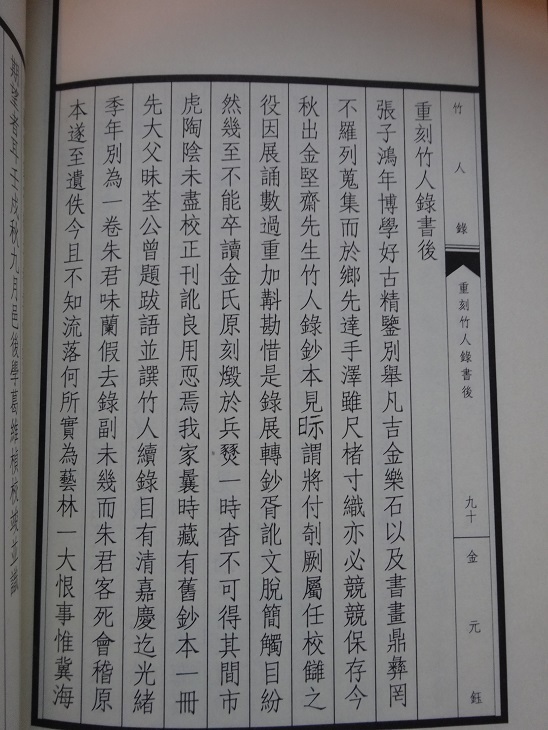 竹人錄
重刻竹人錄書後
九十
金元鈺
重刻竹人錄書後
張子鴻年博學好古精鑒別舉凡吉金樂石以及書畫鼎彝罔
不羅列蒐集而於鄉先達手澤雖尺楮寸織亦必競競保存今
秋出金堅齋先生竹人錄鈔本見眎謂將付剞劂屬任校讎之
役因展誦數過重加斠勘惜是錄展轉鈔胥訛文脫簡觸目紛
然幾至不能卒讀金氏原刻燬於兵燹一時杳不可得其間市
虎陶陰未盡校正刊訛良用恧焉我家曩時藏有舊鈔本一冊
先大父昧荃公曾題跋語並譔竹人續錄目有清嘉慶迄光緒
季年別為一卷朱君味蘭假去錄副未幾而朱君客死會稽原
本遂至遺佚今且不知流落何所實為藝林一大恨事惟冀海
期望者耳壬戌秋九月邑後學葛維楨校竣並識